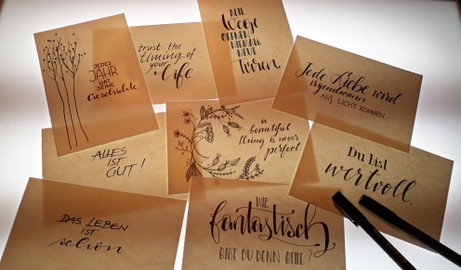 JEDES
JAHR
HAT
SEINE
Geschichte
trust the
timing of
your
Life
ALTE
Wege
ÖFFNEN
NIEMALS
NEUE
Türen.
Jede Liebe wird
irgendwann
ANS LICHT KOMMEN.
ALLES
IST
GUT!
a beautiful
thing is never
perfect
Du bist
wertvoll.
DAS LEBEN
IST
schön
WIE
fantastisch
BIST DU DENN BITTE?